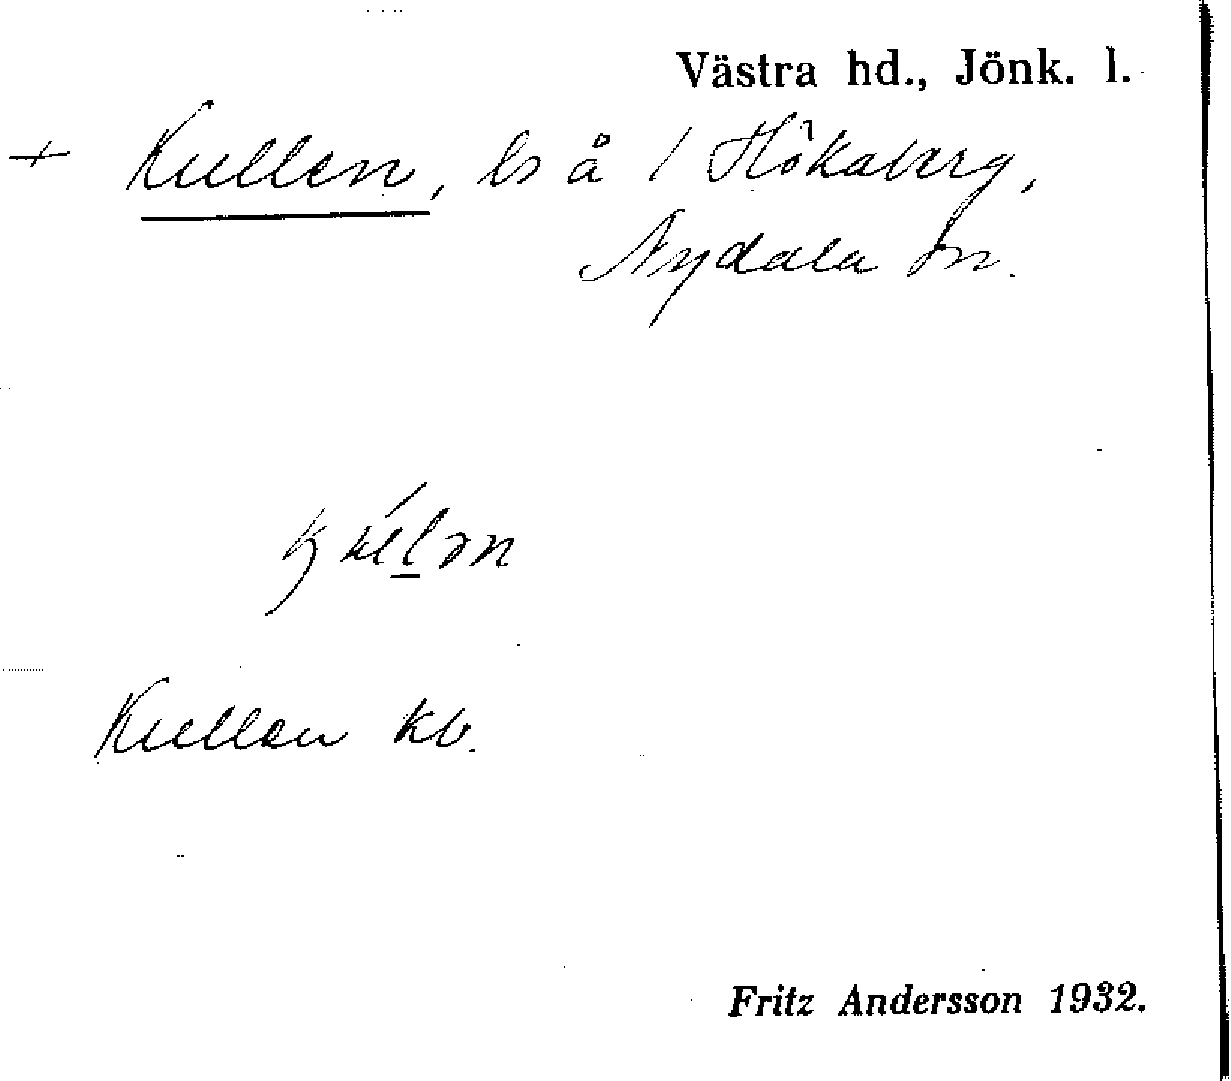 Västra hd., Jönk. l.
+ Kullen, ls å 1 Hökaberg,
Nydala sn.
Kullen kb.
Fritz Andersson 1932.